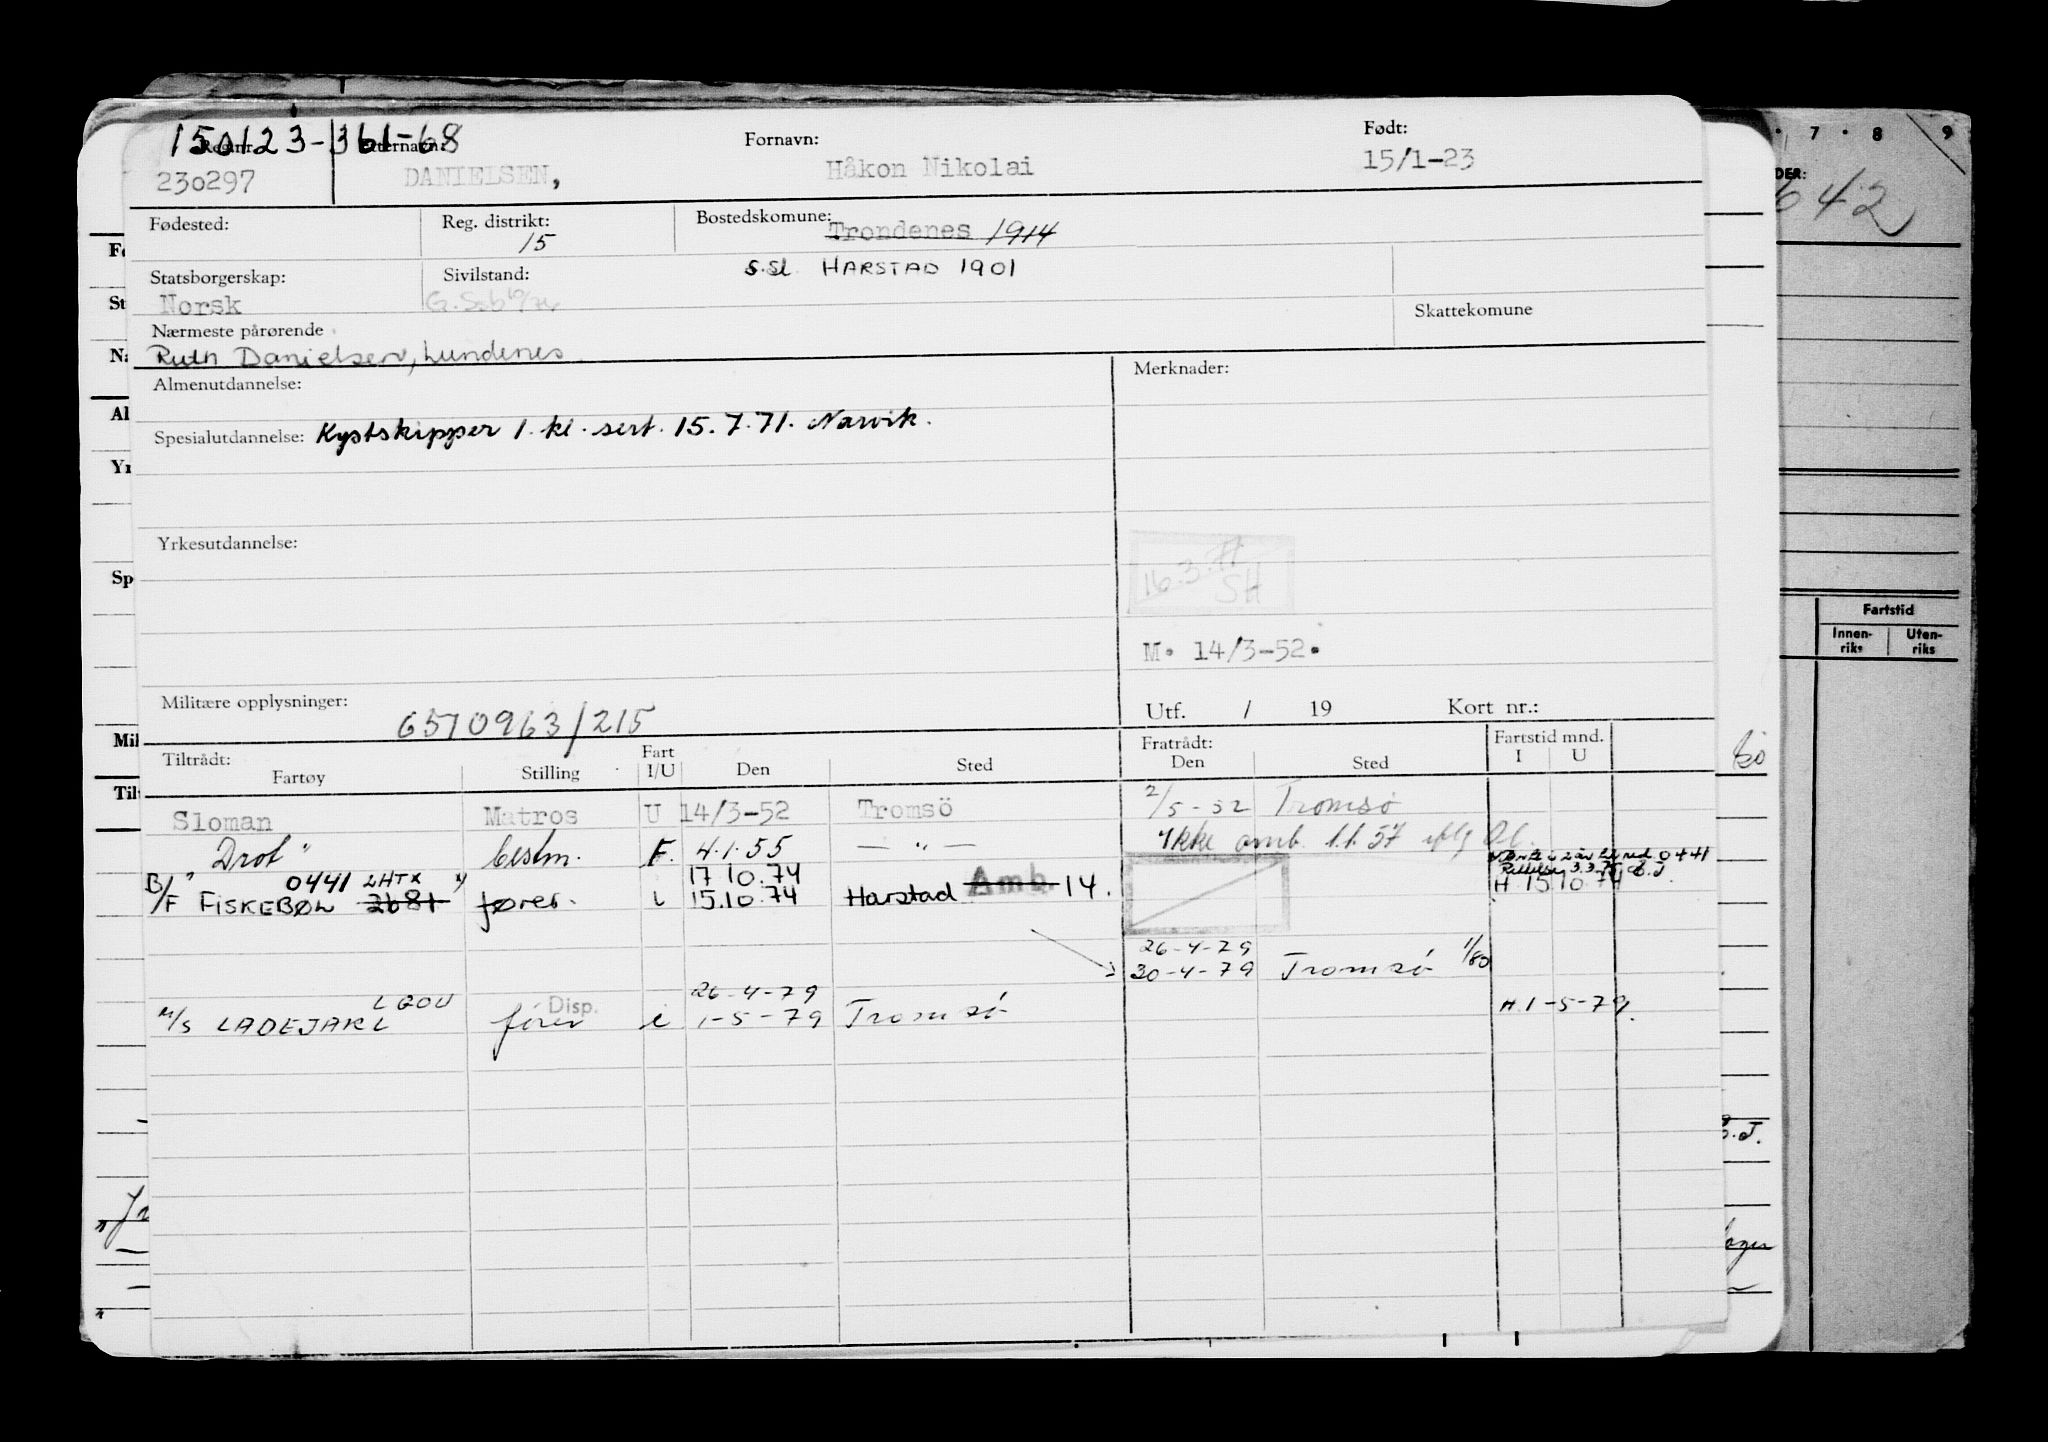 150123-361-68
Reg.nr. Etternavn: Fornavn: Født:
230297 DANIELSEN, Håkon Nikolai 15/1-23
Fødested: Reg. distrikt: 15 Bostedskomune: Trondenes 1914
Statsborgerskap: Norsk Sivilstand: S.sl. HARSTAD 1901
Nærmeste pårørende Skattekomune
Ruth Danielsen, Lundenes
Almenutdannelse: Merknader:
Spesialutdannelse: Kystskipper 1. kl. sert. 15.7.71. Narvik.
Yrkesutdannelse:
16.3.77 SH
M. 14/3-52.
Militære opplysninger: 6510963/215
Utf. / 19 Kort nr.:
Tiltrådt: Fart Fratrådt: Fartstid mnd.
Fartøy Stilling I/U Den Sted Den Sted I U
Sloman Matros U 14/3-52 Tromsö 2/5-52 Tromsø
"Drot" F. 4.1.55 — " — Ikke omb. 1.1.57
0441 LHTX 17 10.74
B/F FISKEBØL 2681 fører. i 15.10.74 Harstad Amb. 14. H 15 10.74
26-4-79
30-4-79 Tromsø 1/80
LGOU Disp. 26-4-79
M/S LADEJARL fører i 1-5-79 Tromsø H 1-5-79.
7 8 9
DER:
642
Fartstid
Innen-riks Uten-riks